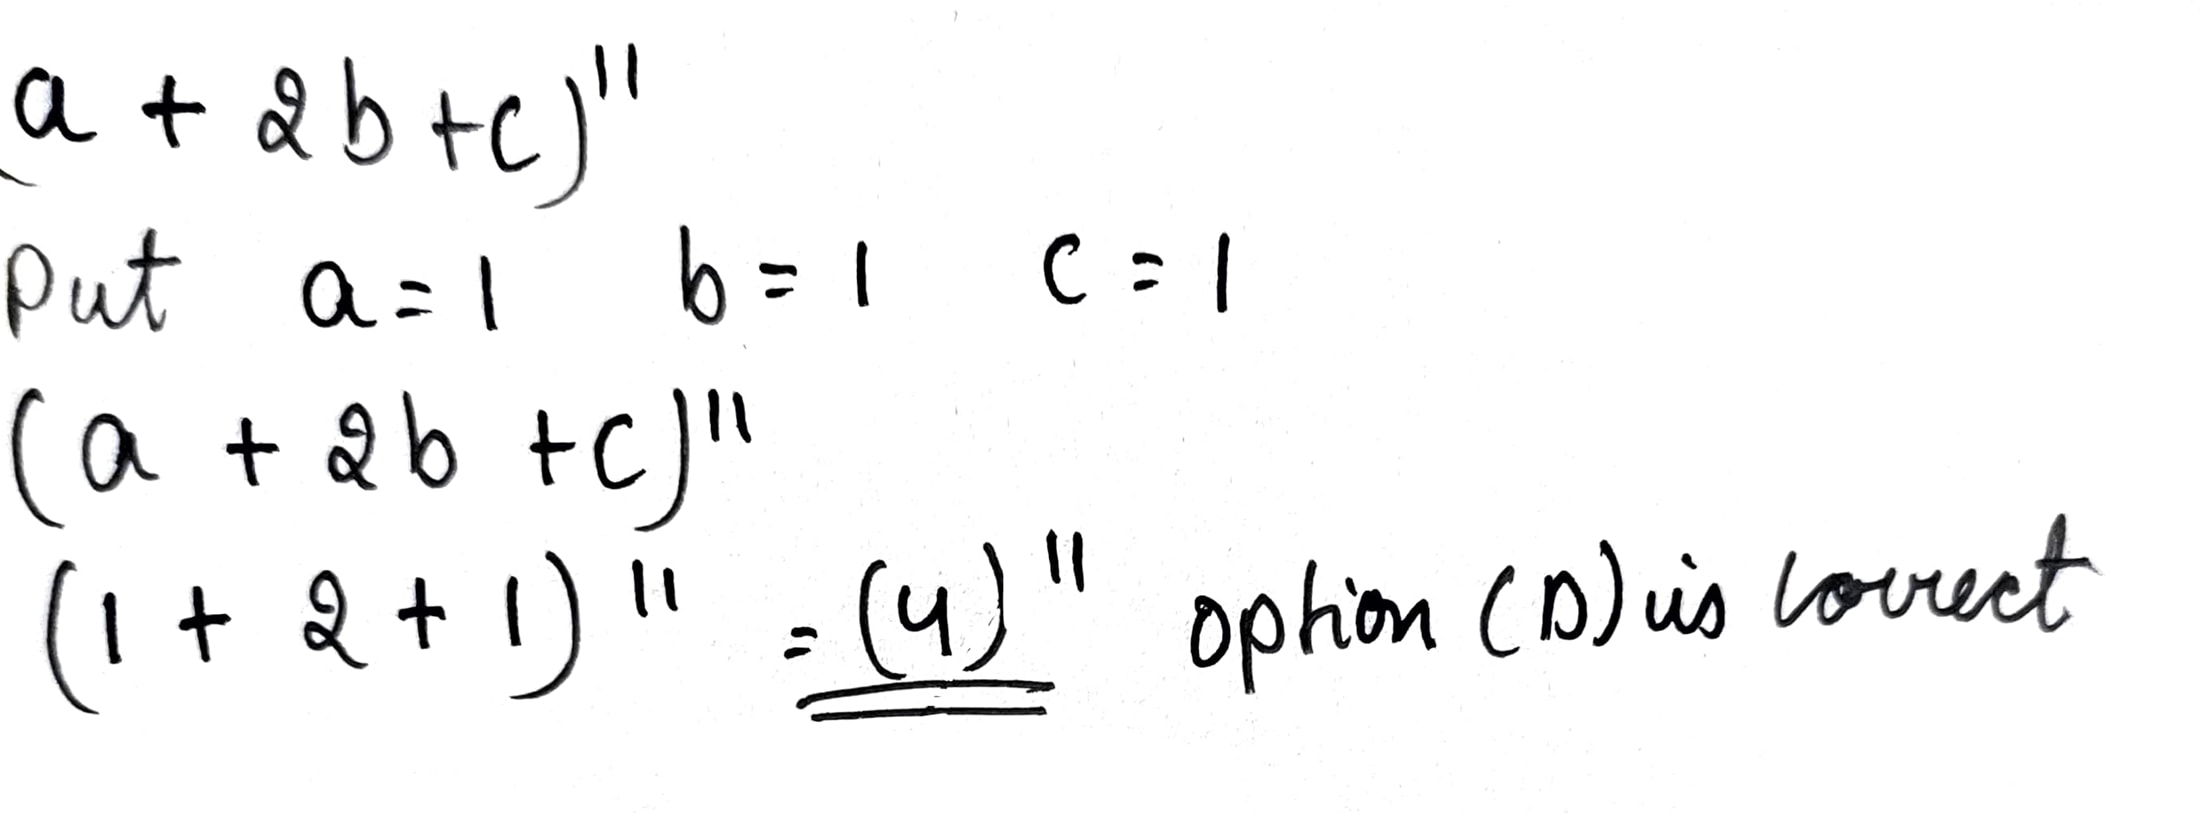 (a + 2b + c)^11
Put a = 1 b = 1 c = 1
(a + 2b + c)^11
(1 + 2 + 1)^11 = (4)^11 option (D) is correct